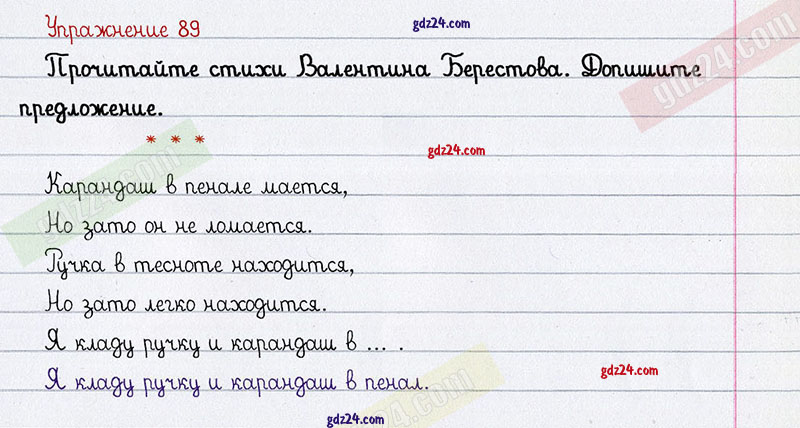 Упражнение 89
gdz24.com
gdz24.com
Прочитайте стихи Валентина Берестова. Допишите
предложение.
* * *
gdz24.com
Карандаш в пенале мается,
gdz24.com
Но зато он не ломается.
Ручка в тесноте находится,
Но зато легко находится.
Я кладу ручку и карандаш в ... .
gdz24.com
Я кладу ручку и карандаш в пенал.
gdz24.com
gdz24.com